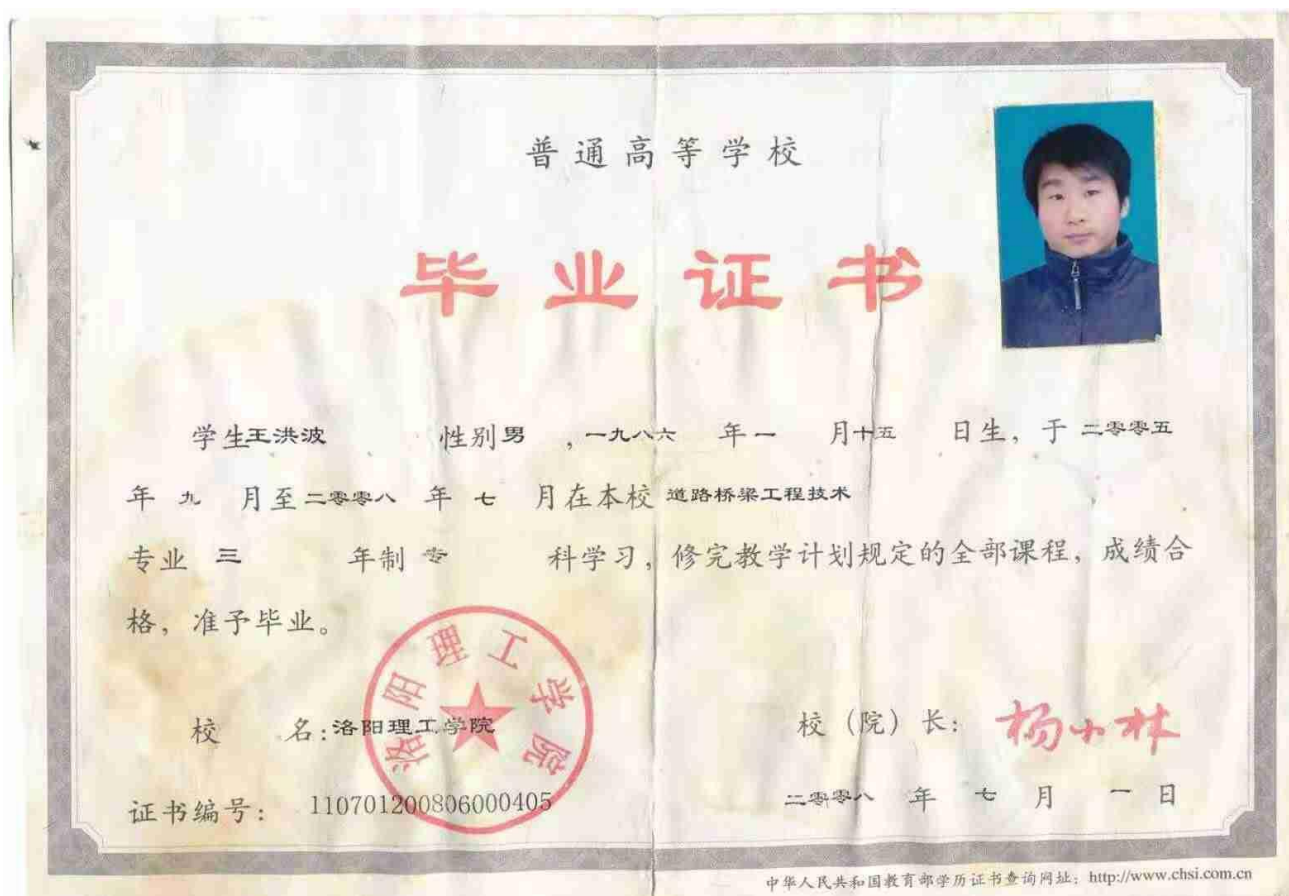 普通高等学校
毕业证书
学生王洪波 性别男 ,一九八六 年一 月十五 日生, 于二零零五
年 九 月至二零零八 年 七 月在本校 道路桥梁工程技术
专业 三 年制 专 科学习, 修完教学计划规定的全部课程, 成绩合
格, 准予毕业。
洛阳理工学院
校 名:洛阳理工学院
校(院)长: 杨小林
证书编号: 110701200806000405
二零零八 年 七 月 一 日
中华人民共和国教育部学历证书查询网址: http://www.chsi.com.cn